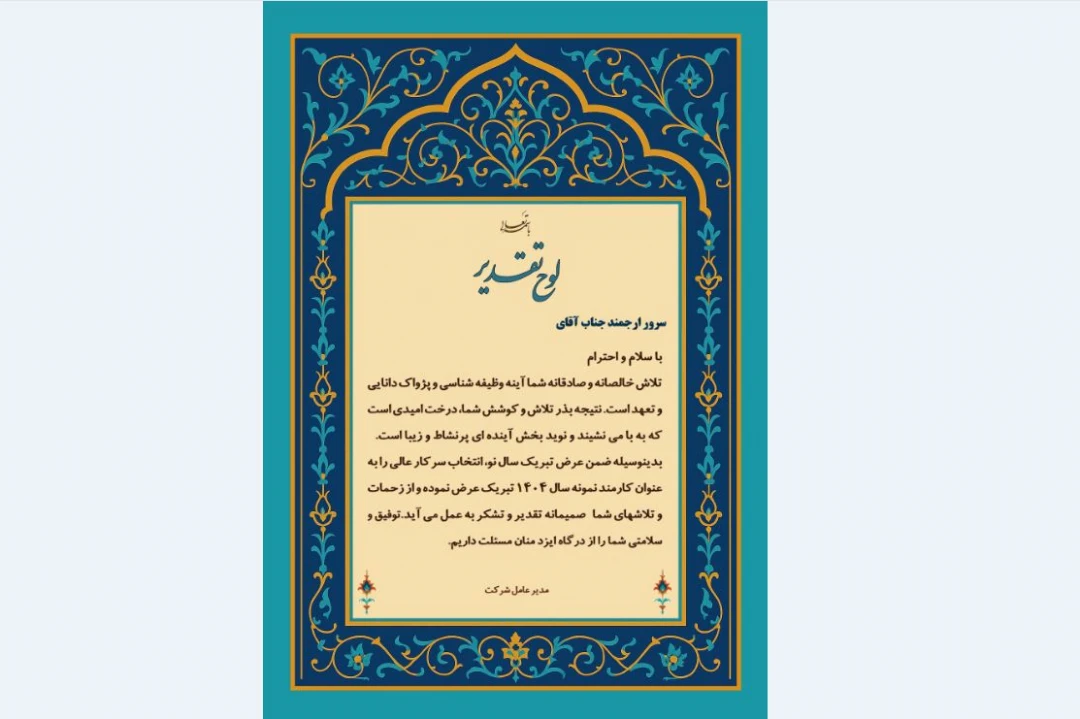 باسمه تعالی
لوح تقدیر
سرور ارجمند جناب آقای
با سلام و احترام
تلاش خالصانه و صادقانه شما آینه وظیفه شناسی و پژواک دانایی
و تعهد است. نتیجه بذر تلاش و کوشش شما، درخت امیدی است
که به با می نشیند و نوید بخش آینده ای پرنشاط و زیبا است.
بدینوسیله ضمن عرض تبریک سال نو، انتخاب سرکار عالی را به
عنوان کارمند نمونه سال ۱۴۰۴ تبریک عرض نموده و از زحمات
و تلاشهای شما صمیمانه تقدیر و تشکر به عمل می آید. توفیق و
سلامتی شما را از درگاه ایزد منان مسئلت داریم.
مدیر عامل شرکت